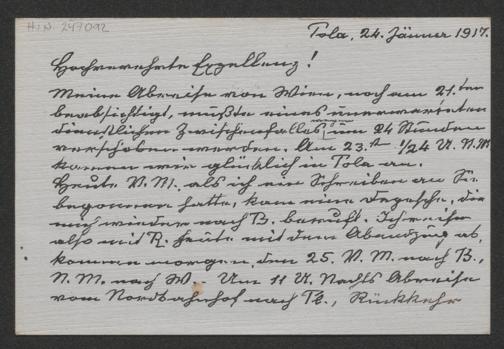 H.I.N. 247092
Pola, 24. Jänner 1917.
Hochverehrte Exzellenz!
Meine Abreise von Wien, noch am 21.ten
beabsichtigt, mußte eines unerwarteten
dienstlichen Zwischenfalles um 24 Stunden
verschoben werden. Am 23.ten 1/24 U. N.M.
kamen wir glücklich in Pola an.
Heute V.M., als ich ein Schreiben an Sie
begonnen hatte, kam eine Depesche, die
mich wieder nach B. beruft. Ich reise
also mit R. heute mit dem Abendzug ab,
kommen morgen, den 25. V.M. nach B.,
N.M. nach W. Um 11 U. Nachts Abreise
vom Nordbahnhof nach Te., Rückkehr